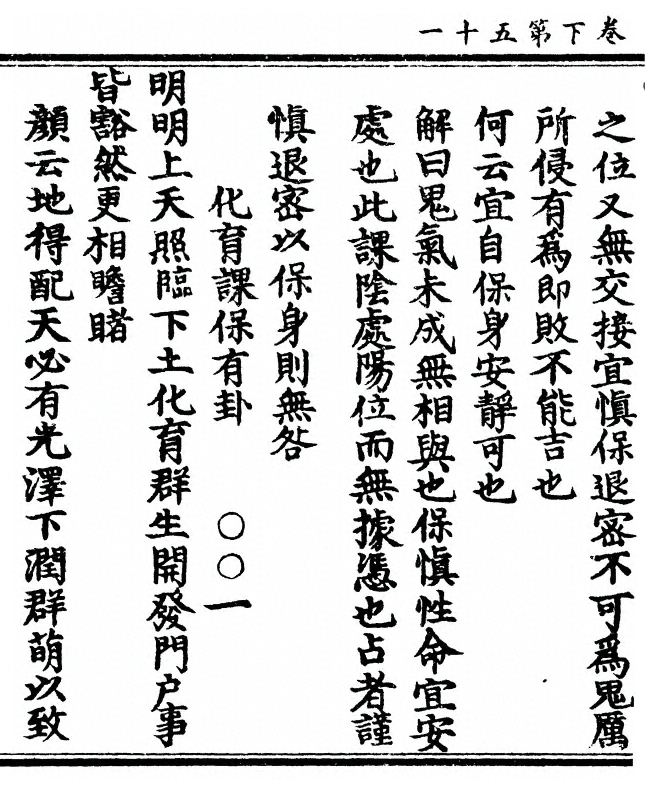 卷下第五十一
之位又無交接宜慎保退密不可爲鬼厲
所侵有爲即敗不能吉也
何云宜自保身安靜可也
解曰鬼氣未成無相與也保慎性命宜安
處也此課陰處陽位而無據憑也占者謹
慎退密以保身則無咎
化育課保有卦 〇〇一
明明上天照臨下土化育群生開發門户事
皆豁然更相瞻睹
顏云地得配天必有光澤下潤群萌以致